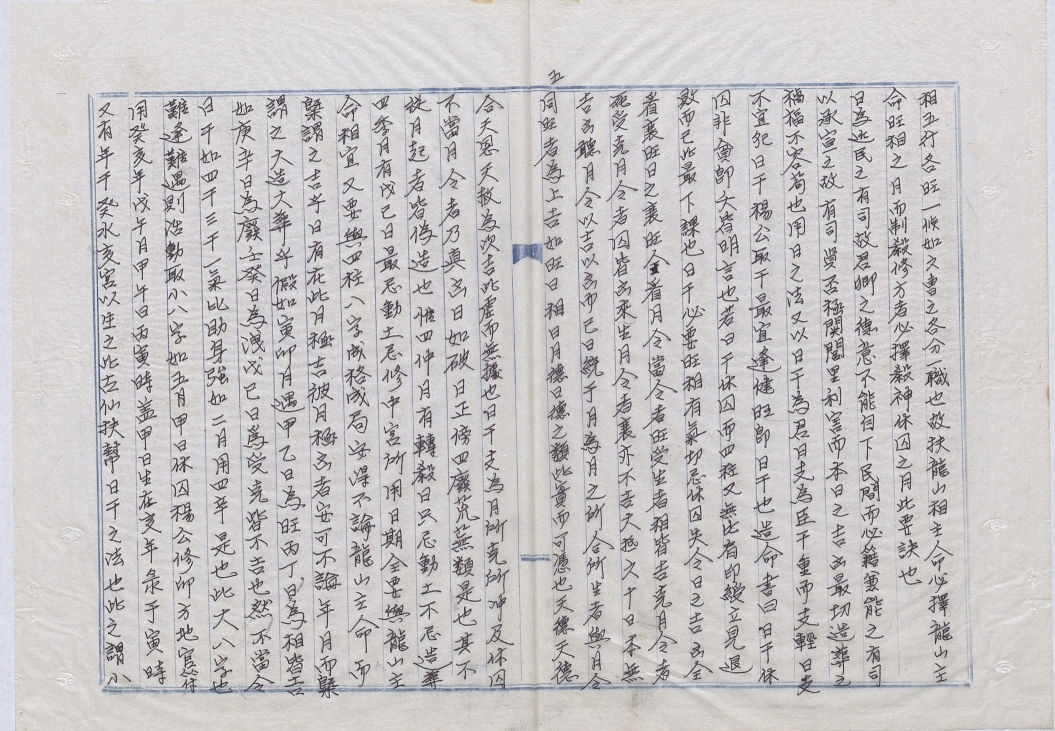 相五行各旺一候如六曹之各分一職也故扶龍山相主命必擇龍山主
命旺相之月而制殺修方者必擇殺神休囚之月此要訣也
日為近民之有司故君卿之德意不能自下民間而必籍兼能之有司
以承宣之故有司賢否極関閭里利害而本日之吉凶最切造葬之
禍福不容苟也用日之法又以日干為君日支為臣干重而支輕日支
不宜犯日干楊公取干最宜逢健旺即日干也造命書曰日干休
囚非貧即夭皆明言也若日干休囚而四柱又無比肩印綬立見退
敗而已此最下課也日干必要旺相有氣切忌休囚失令日之吉凶全
看衰旺日之衰旺全看月令當令者旺受生者相皆吉克月令者
死受克月令者囚皆凶來生月令者衰亦不吉大抵六十日本無
吉凶聽月令以吉以凶而已日統于月為月之所合所生者與月令
五
同旺者為上吉如旺日相日月德日德之類此實而可憑也天德天德
合天恩天赦為次吉此虛而無據也日干支為月所克所冲及休囚
不當月令者乃真凶日如破日正傍四廢荒蕪類是也其不
從月起者皆偽造也惟四仲月有轉殺日只忌動土不忌造葬
四季月有戊己日最忌動土忌修中宮所用日期全要與龍山主
命相宜又要與四柱八字成格成局安得不論龍山主命而
槩謂之吉乎日有在此月極吉彼月極凶者安可不論年月而槩
謂之大造大葬乎假如寅卯月遇甲乙日為旺丙丁日為相皆吉
如庚辛日為廢壬癸日為洩戊己日為受克皆不吉也然不當令
日干如四干三干一氣比助身強如二月用四辛是也此大八字也
難逢難遇則活動取小八字如五月甲日休囚楊公修卯方地官符
用癸亥年戊午月甲午日丙寅時盖甲日生在亥年彔于寅時
又有年干癸水亥宮以生之此古仙扶幫日干之法也此之謂小